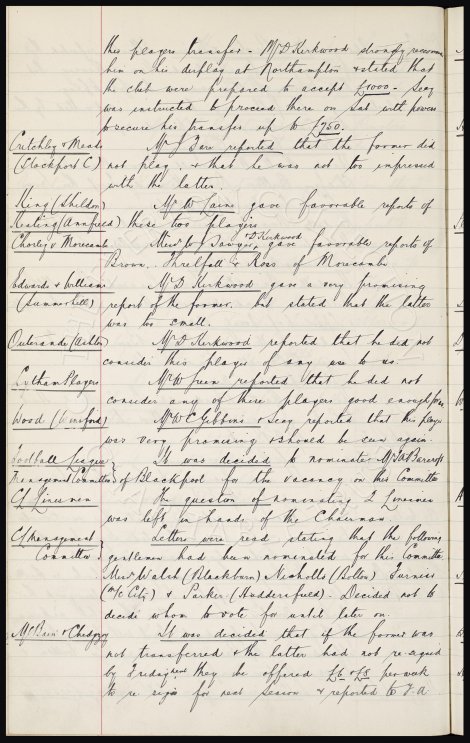 this players transfer - Mr D Kirkwood strongly recomm
him on his display at Northampton & stated that
the club were prepared to accept £1000 - Secy
was instructed to proceed there on Sat with powers
to secure his transfer up to £750.
Critchley & Meads Mr J Barr reported that the former did
(Stockport C) not play. & that he was not too impressed
with the latter.
King (Shildon) Mr W Laine gave favorable reports of
Keating (Annfield) these two players
Chorley v Morecambe Messrs Sawyer & D Kirkwood gave favorable reports of
Brown. Threlfall & Ross of Morecambe
Edwards & Williams Mr D Kirkwood gave a very promising
(Summerhill) report of the former. but stated that the latter
was too small.
(Ashton) Mr D Kirkwood reported that he did not
consider this player of any use to us.
Lytham Players Mr W Green reported that he did not
consider any of these players good enough for us
Wood (Winsford) Mr W C Gibbins & Secy reported that this player
was very promising & should be seen again.
Football League It was decided to nominate Mr A Barcroft
Management Committee of Blackpool for the vacancy on this Committee
CL Linesmen The question of nominating 2 Linesmen
was left in hands of the Chairman
CL Management Letters were read stating that the following
Committee. gentlemen had been nominated for this Committee
Messrs Walsh (Blackburn) Nicholls (Bolton) Furniss
(M/c City) & Parker (Huddersfield). Decided not to
decide whom to vote for until later on.
McBain & Chedgzoy It was decided that if the former was
not transferred & the latter had not re-signed
by Friday next they be offered £6 & £8 per week
to re sign for next season & reported to F.A